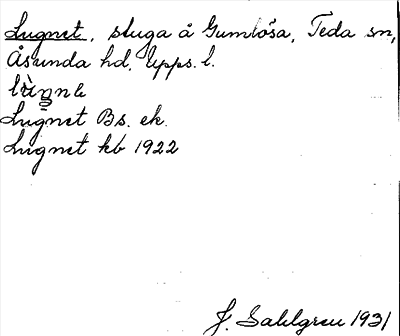 Lugnet, stuga å Gumlösa, Teda sn,
Åsunda hd. Upps. l.
Lugnet Bs. ek.
Lugnet kb 1922
J. Sahlgren 1931